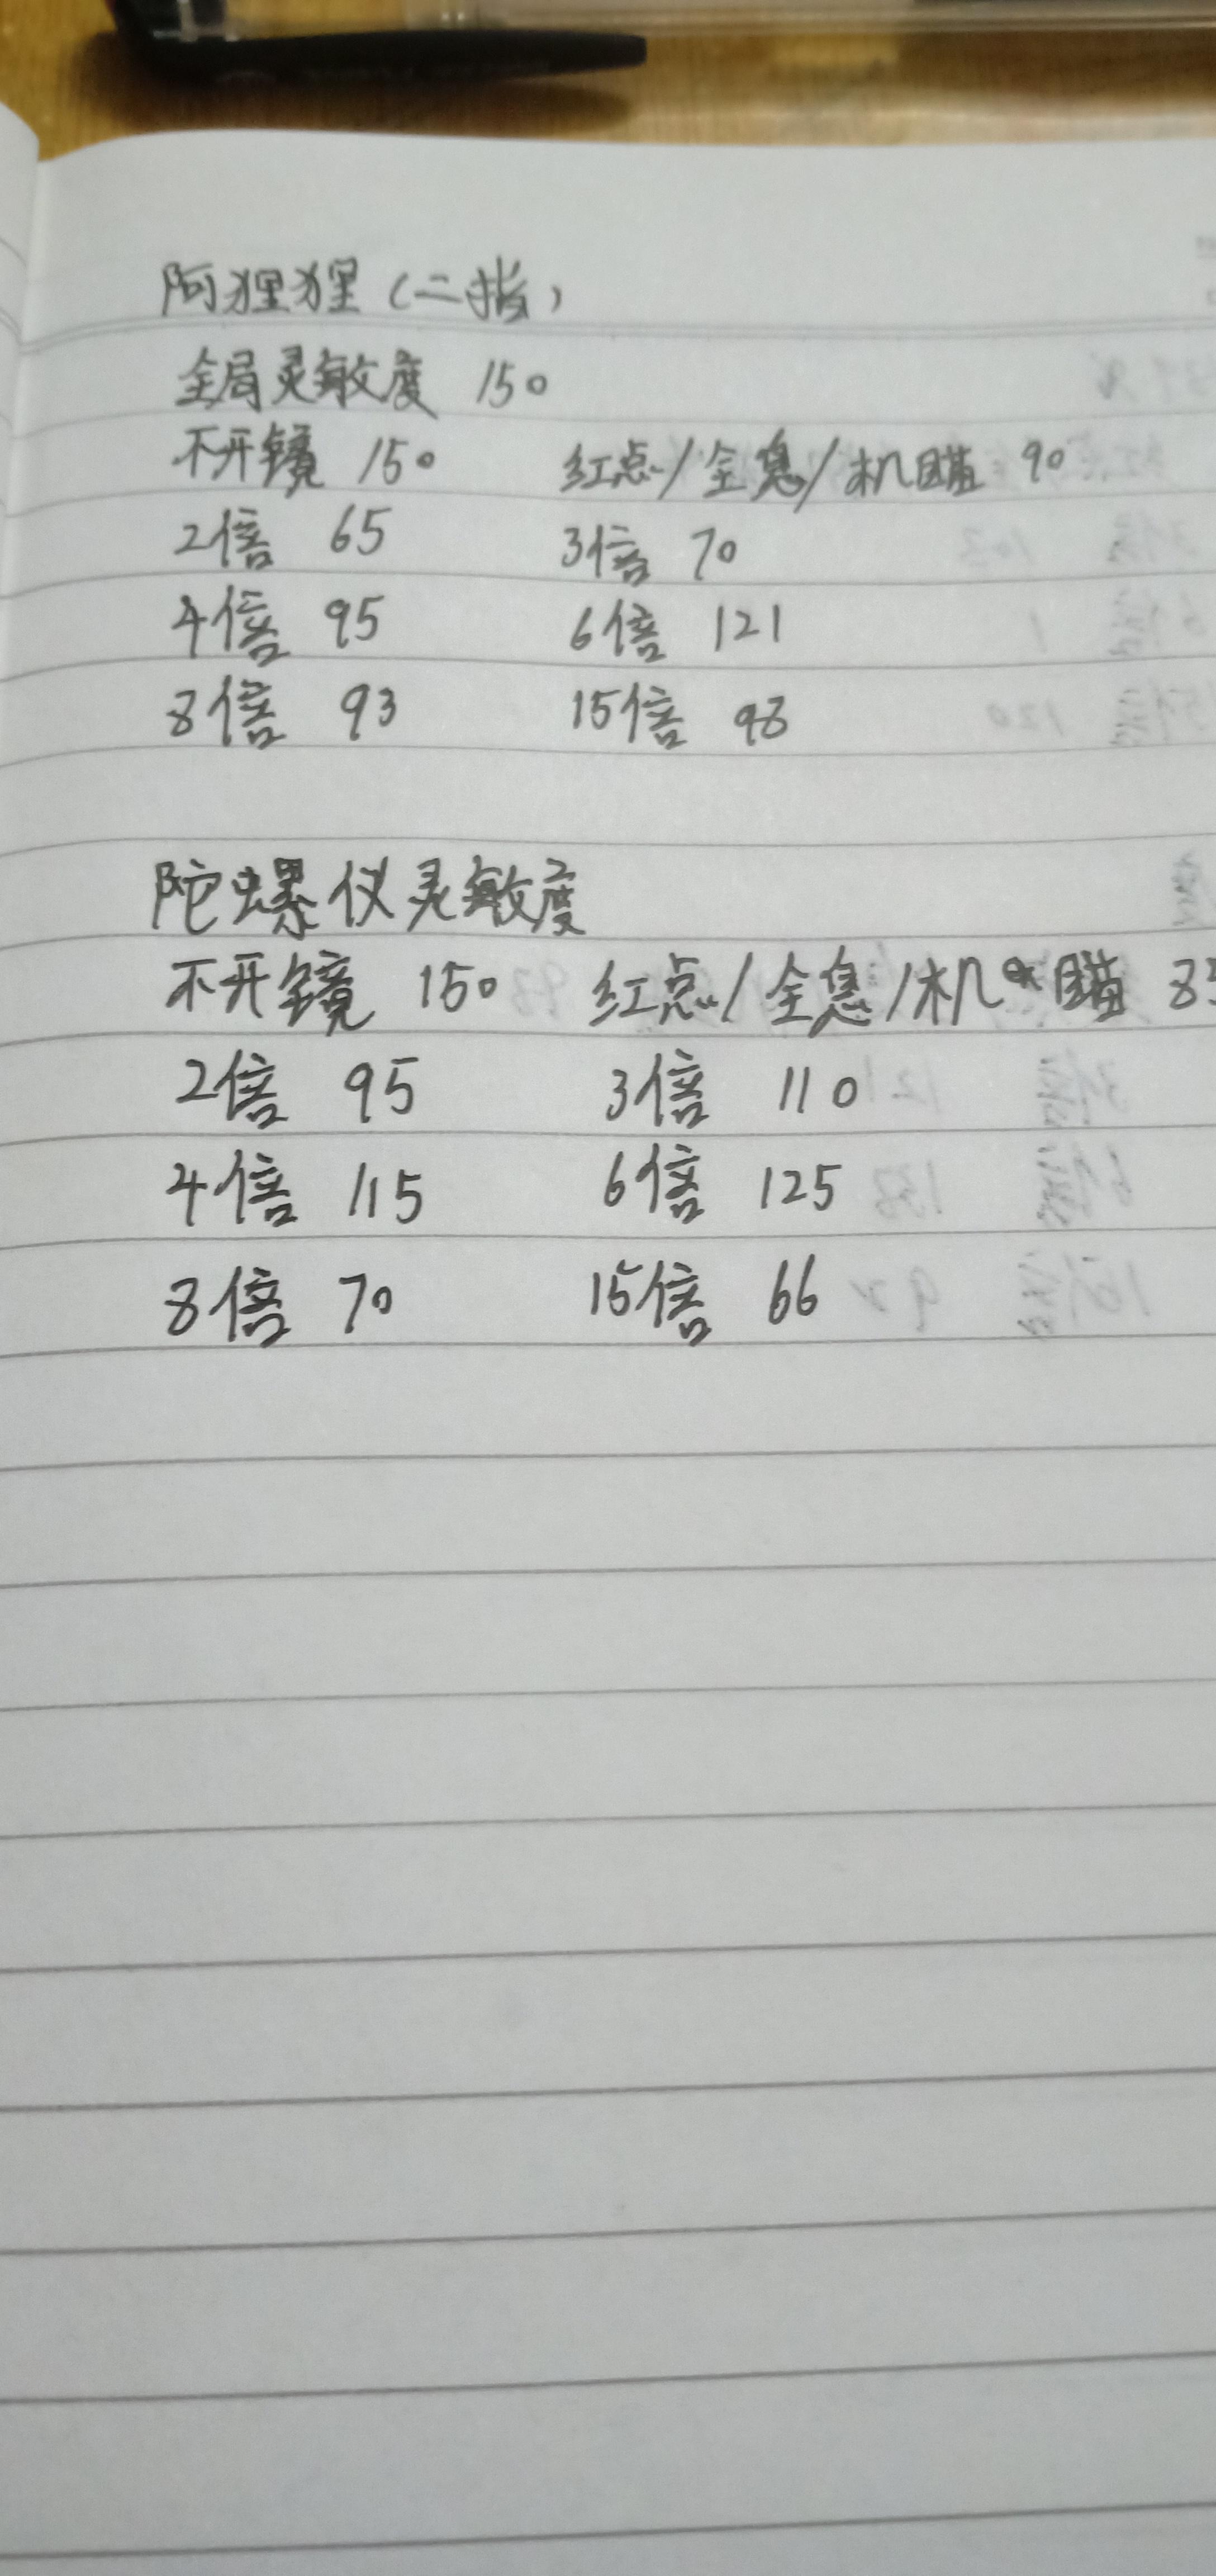 阿狸狸(二指)
全局灵敏度 150
不开镜 150 红点/全息/机瞄 90
2倍 65 3倍 70
4倍 95 6倍 121
8倍 93 15倍 98
陀螺仪灵敏度
不开镜 150 红点/全息/机瞄 85
2倍 95 3倍 110
4倍 115 6倍 125
8倍 70 15倍 66